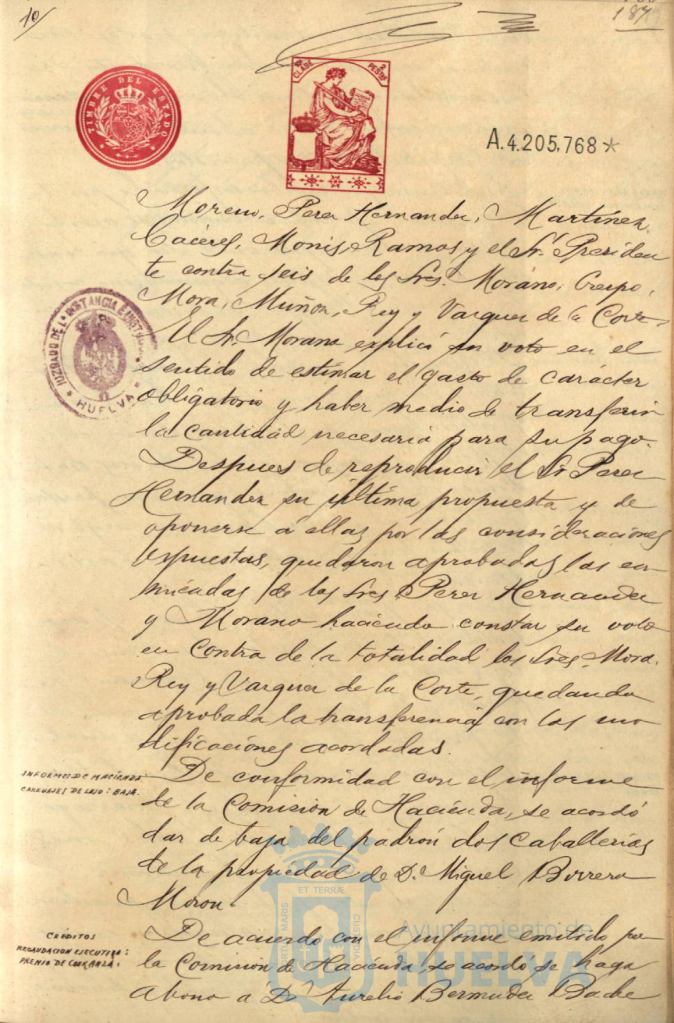 10
187
TIMBRE DEL ESTADO
CLASE
PESTAS
A.4.205,768*
Moreno, Perez Hernandez, Martínez,
Cáceres, Monis, Ramos y el Sr. Presiden
te contra seis de los Sres. Morano, Crespo,
Mora, Muñoz, Rey y Vazquez de la Corte.
El Sr. Morano explicó su voto en el
sentido de estimar el gasto de carácter
obligatorio y haber medio de transferir
la cantidad necesaria para su pago.
Despues de reproducir el Sr. Perez
Hernandez su última propuesta y de
oponerse á ellas por las consideraciones
expuestas, quedaron aprobadas las en-
miendas de los Sres. Perez Hernandez
y Morano haciendo constar su voto
en contra de la totalidad los Sres. Mora,
Rey y Vazquez de la Corte, quedando
aprobada la transferencia con las mo
dificaciones acordadas.
INFORMES DE HACIENDA
CARRUAJES DE LUJO: BAJA.
De conformidad con el informe
de la Comision de Hacienda, se acordó
dar de baja del padrón dos caballerías
de la propiedad de D. Miguel Borrero
Moron.
CRÉDITOS
RECAUDACION EJECUTIVA:
PREMIO DE COBRANZA.
De acuerdo con el informe emitido por
la Comision de Hacienda se acordó se haga
abono a D. Aurelio Bermudez
JUZGADO DE 1ª INSTANCIA E INSTRUCCION
HUELVA
ET TERRÆ
MARIS
CUSTODIA
Ayuntamiento de
HUELVA